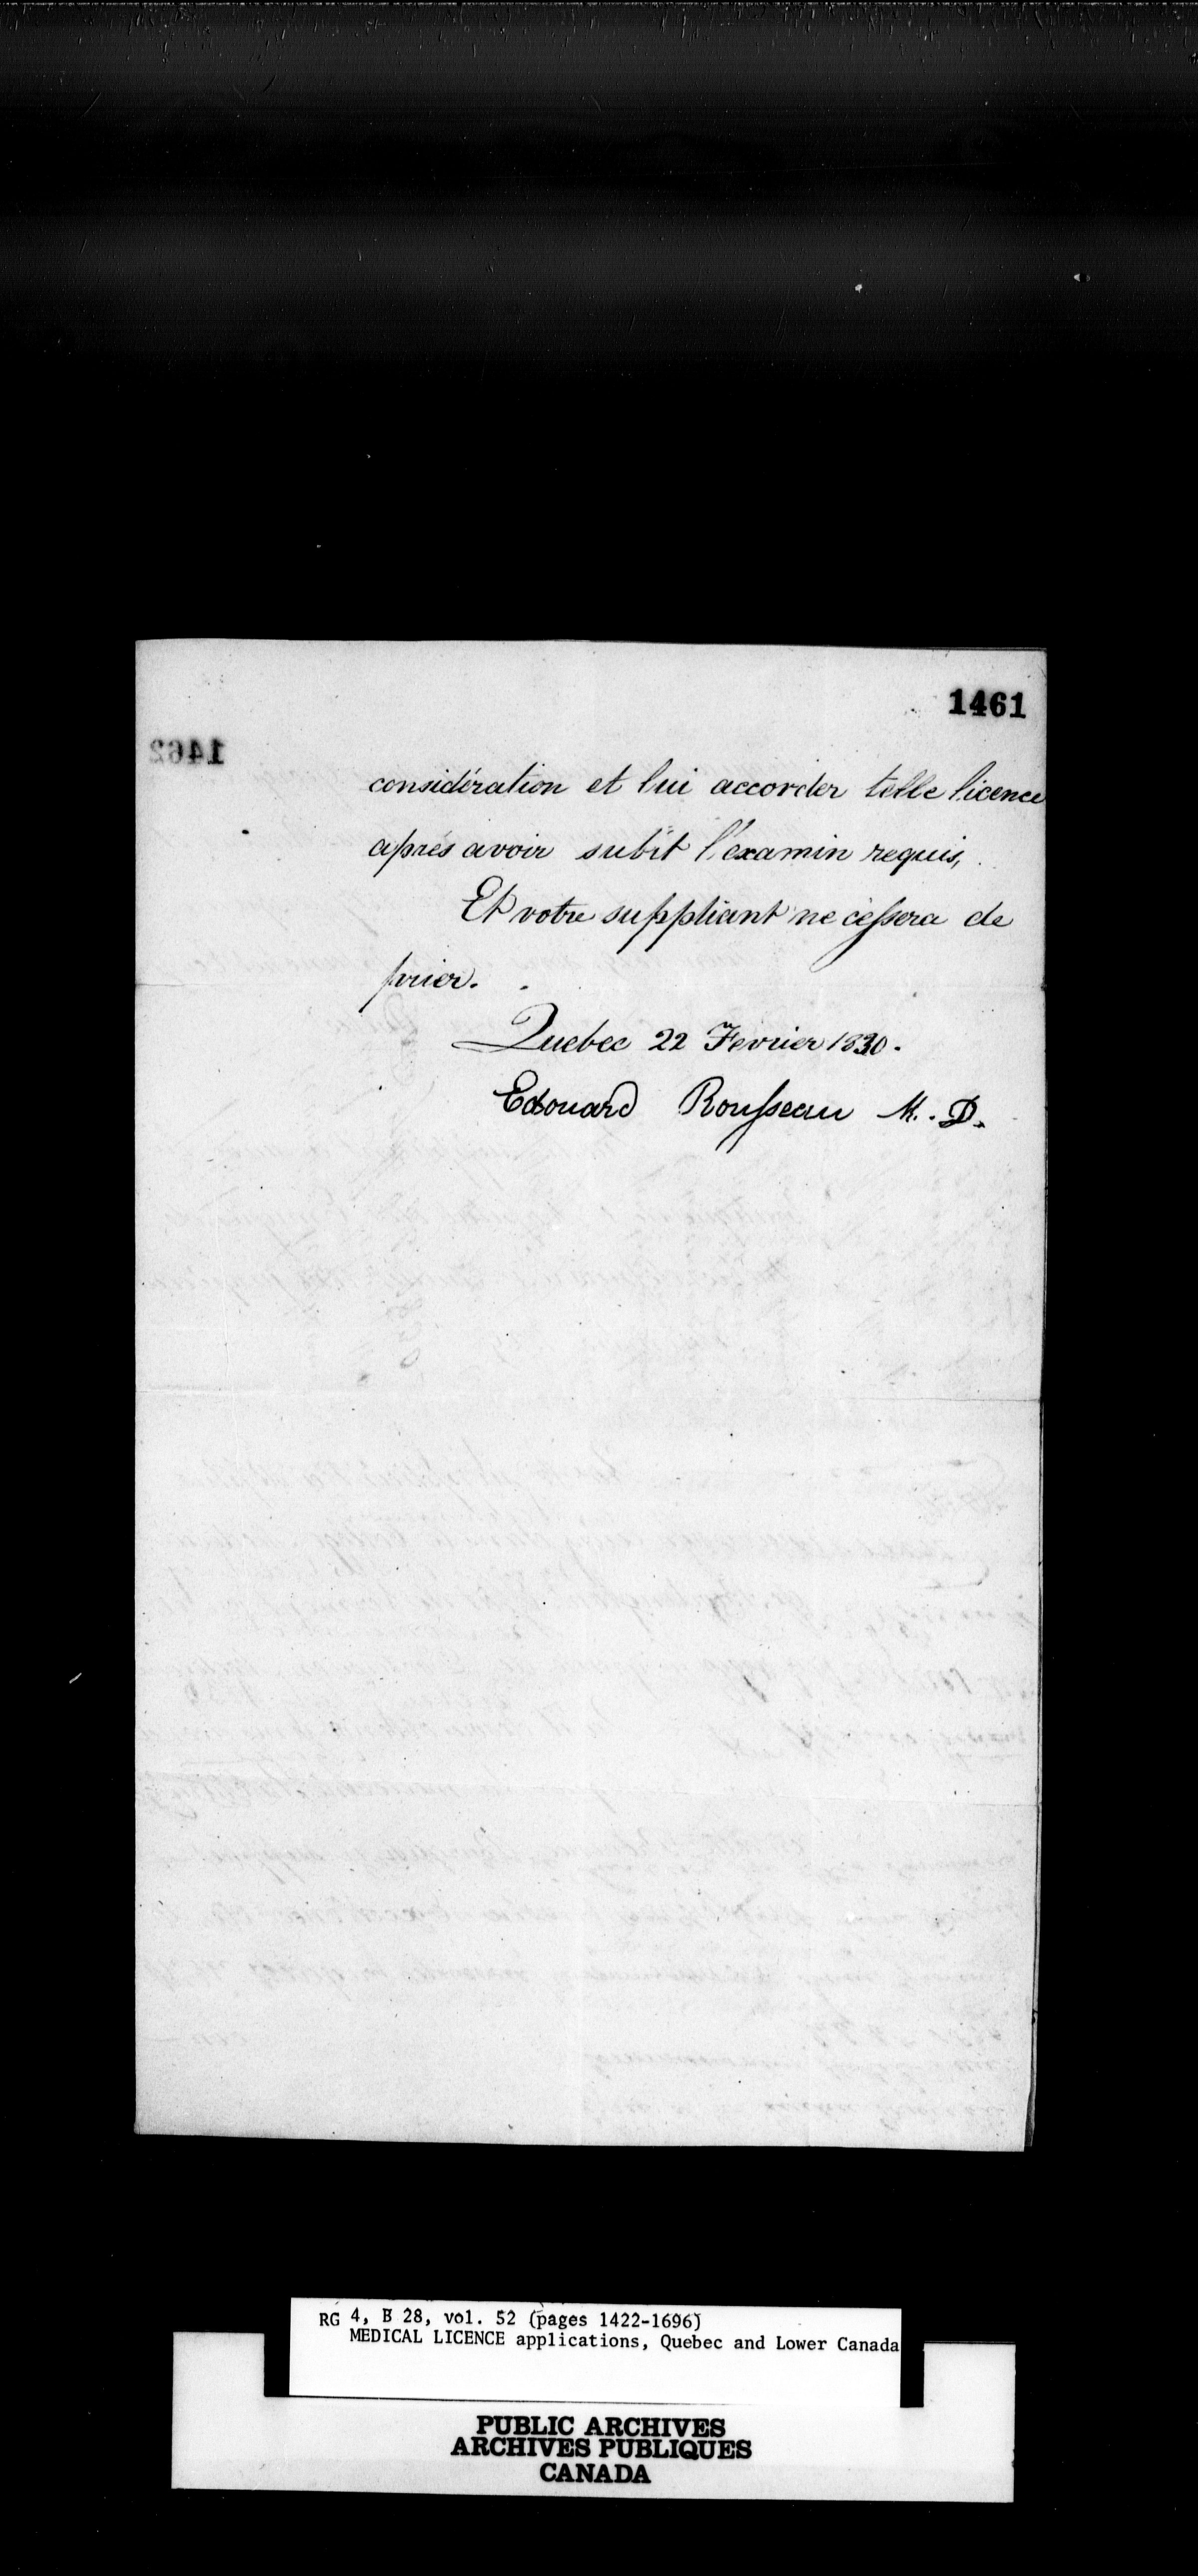 1461
1462
considération et lui accorder telle licence
aprés avoir subit l'éxamin requis,
Et votre suppliant ne cessera de
prier.
Quebec 22 Fevrier 1830.
Edouard Rousseau M. D.
RG 4, B 28, vol. 52 (pages 1422-1696)
MEDICAL LICENCE applications, Quebec and Lower Canada
PUBLIC ARCHIVES
ARCHIVES PUBLIQUES
CANADA